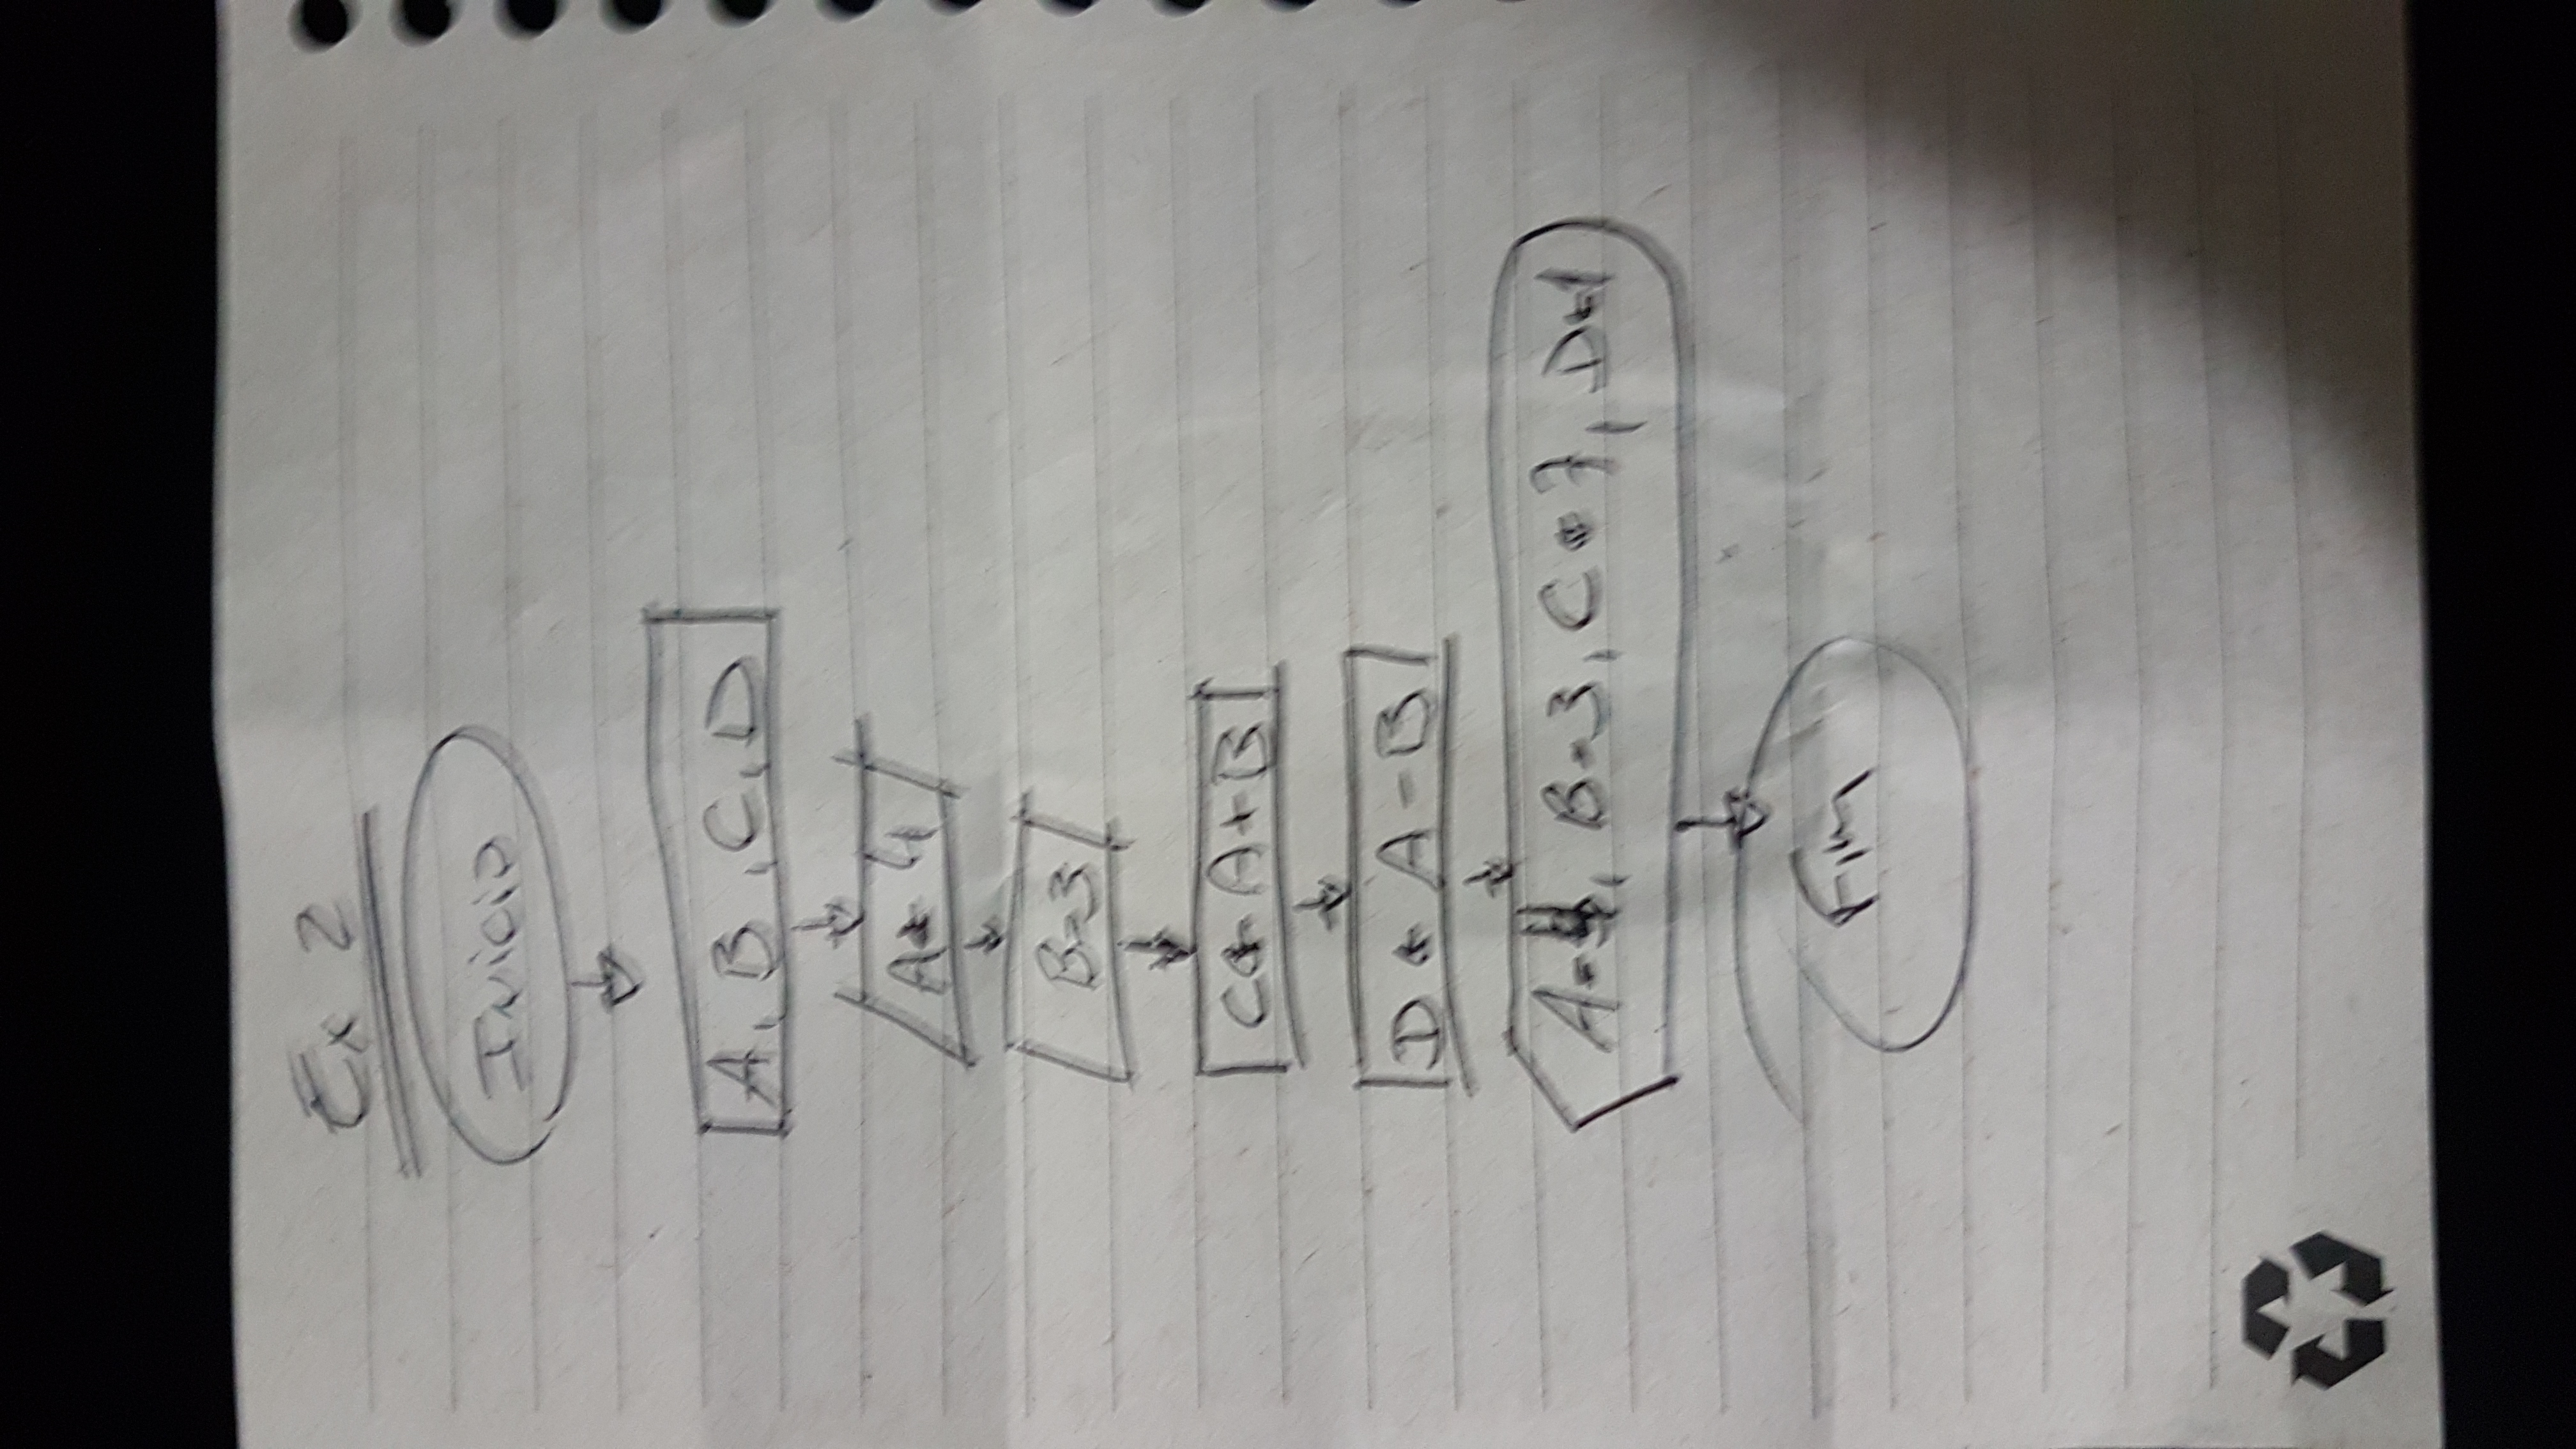 Ex 2
Inicio
A, B, C, D
A ← 4
B = 3
C ← A + B
D ← A - B
A = 4, B = 3, C = 7, D = 1
Fim